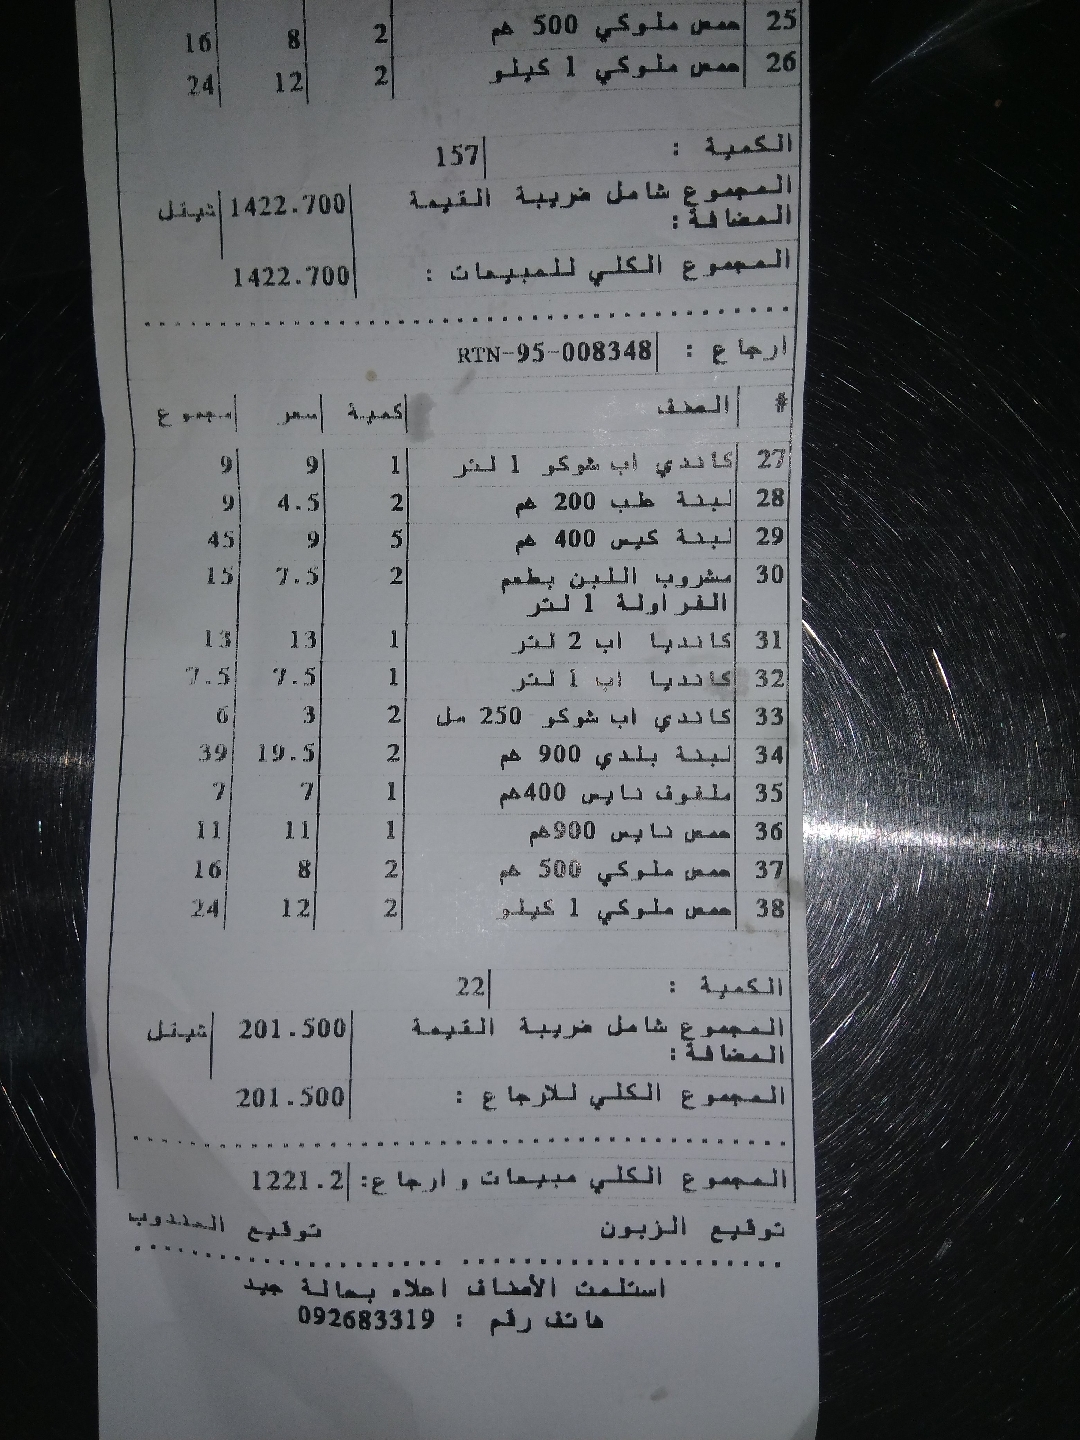 25 حمص ملوكي 500 غم 2 8 16
26 حمص ملوكي 1 كيلو 2 12 24
الكمية : 157
المجموع شامل ضريبة القيمة 1422.700 شيقل
المضافة:
المجموع الكلي للمبيعات : 1422.700
ارجاع : RTN-95-008348
# الصنف كمية سعر مجموع
27 كاندي اب شوكو 1 لتر 1 9 9
28 لبنة طب 200 غم 2 4.5 9
29 لبنة كيس 400 غم 5 9 45
30 مشروب اللبن بطعم 2 7.5 15
الفراولة 1 لتر
31 كانديا اب 2 لتر 1 13 13
32 كانديا اب 1 لتر 1 7.5 7.5
33 كاندي اب شوكو 250 مل 2 3 6
34 لبنة بلدي 900 غم 2 19.5 39
35 ملفوف نايس 400غم 1 7 7
36 حمص نايس 900غم 1 11 11
37 حمص ملوكي 500 غم 2 8 16
38 حمص ملوكي 1 كيلو 2 12 24
الكمية : 22
المجموع شامل ضريبة القيمة 201.500 شيقل
المضافة:
المجموع الكلي للارجاع : 201.500
المجموع الكلي مبيعات و ارجاع: 1221.2
توقيع الزبون توقيع المندوب
استلمت الأصناف اعلاه بحالة جيد
هاتف رقم : 092683319